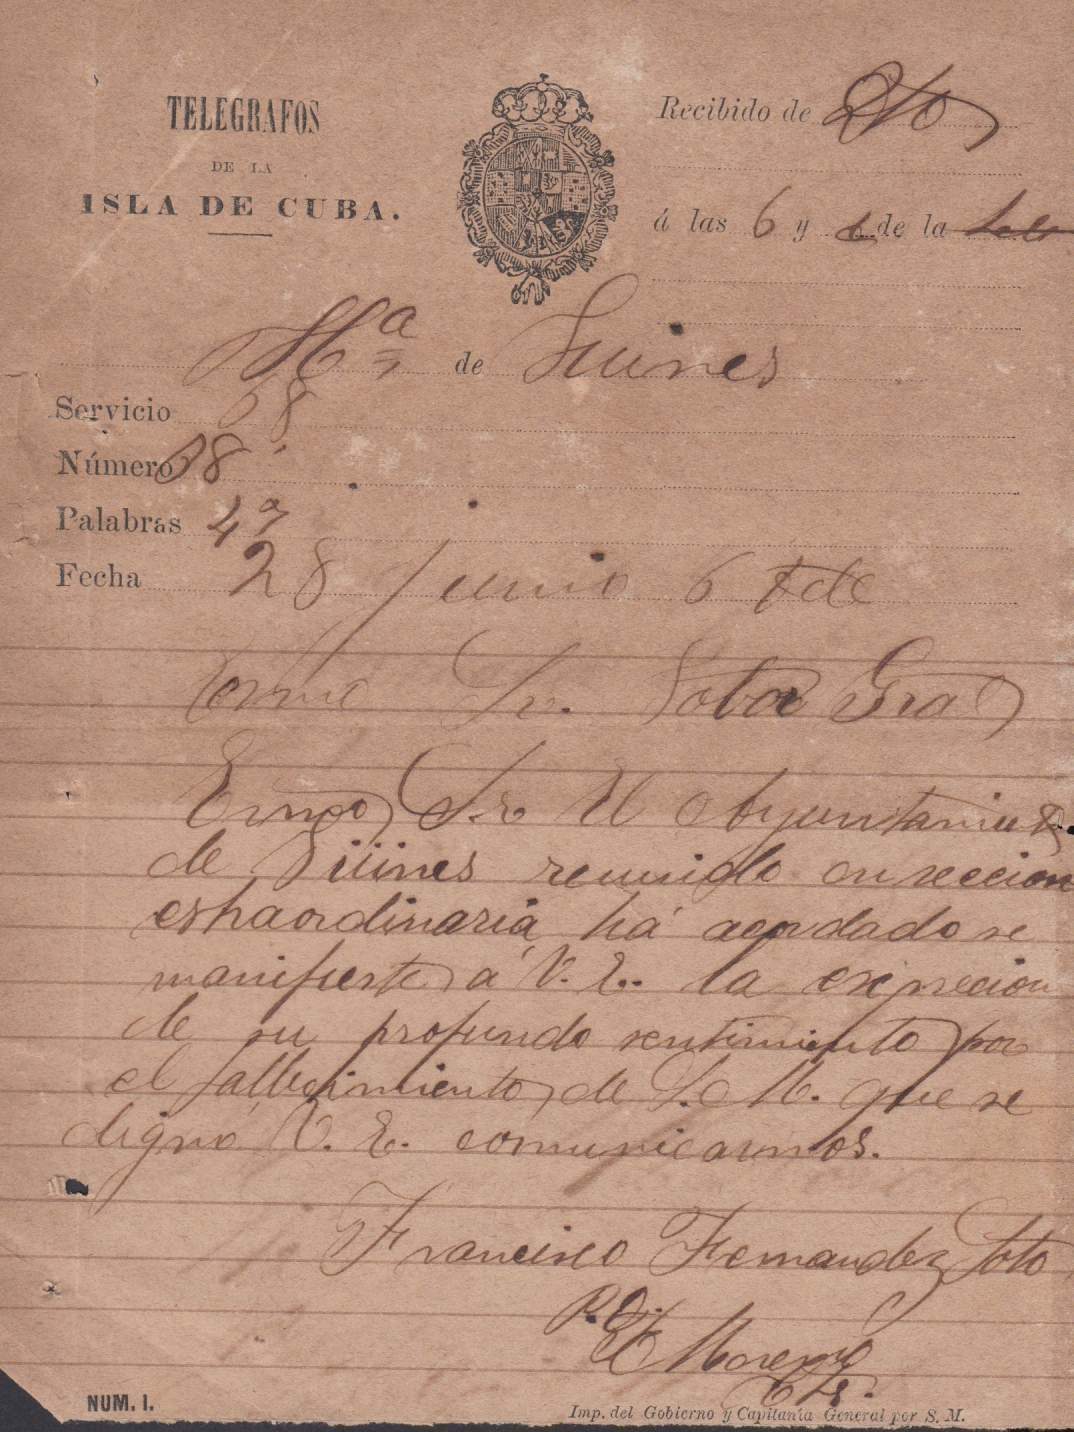 TELEGRAFOS
DE LA
ISLA DE CUBA.
Recibido de
á las 6 y de la
Hª de Guines
Servicio 68
Número 18
Palabras 47
Fecha 28 junio 6 tde
Exmo Sr. Gobor Gral
Exmo Sr. El Ayuntamiento
de Güines reunido en seccion
estraordinaria há acordado se
manifieste á V. E. la exprecion
de su profundo sentimiento por
el fallecimiento de S. M. que se
digno V. E. comunicarnos.
Francisco Fernandez Soto
P. O.
Moreno
NUM. I.
Imp. del Gobierno y Capitanía General por S. M.